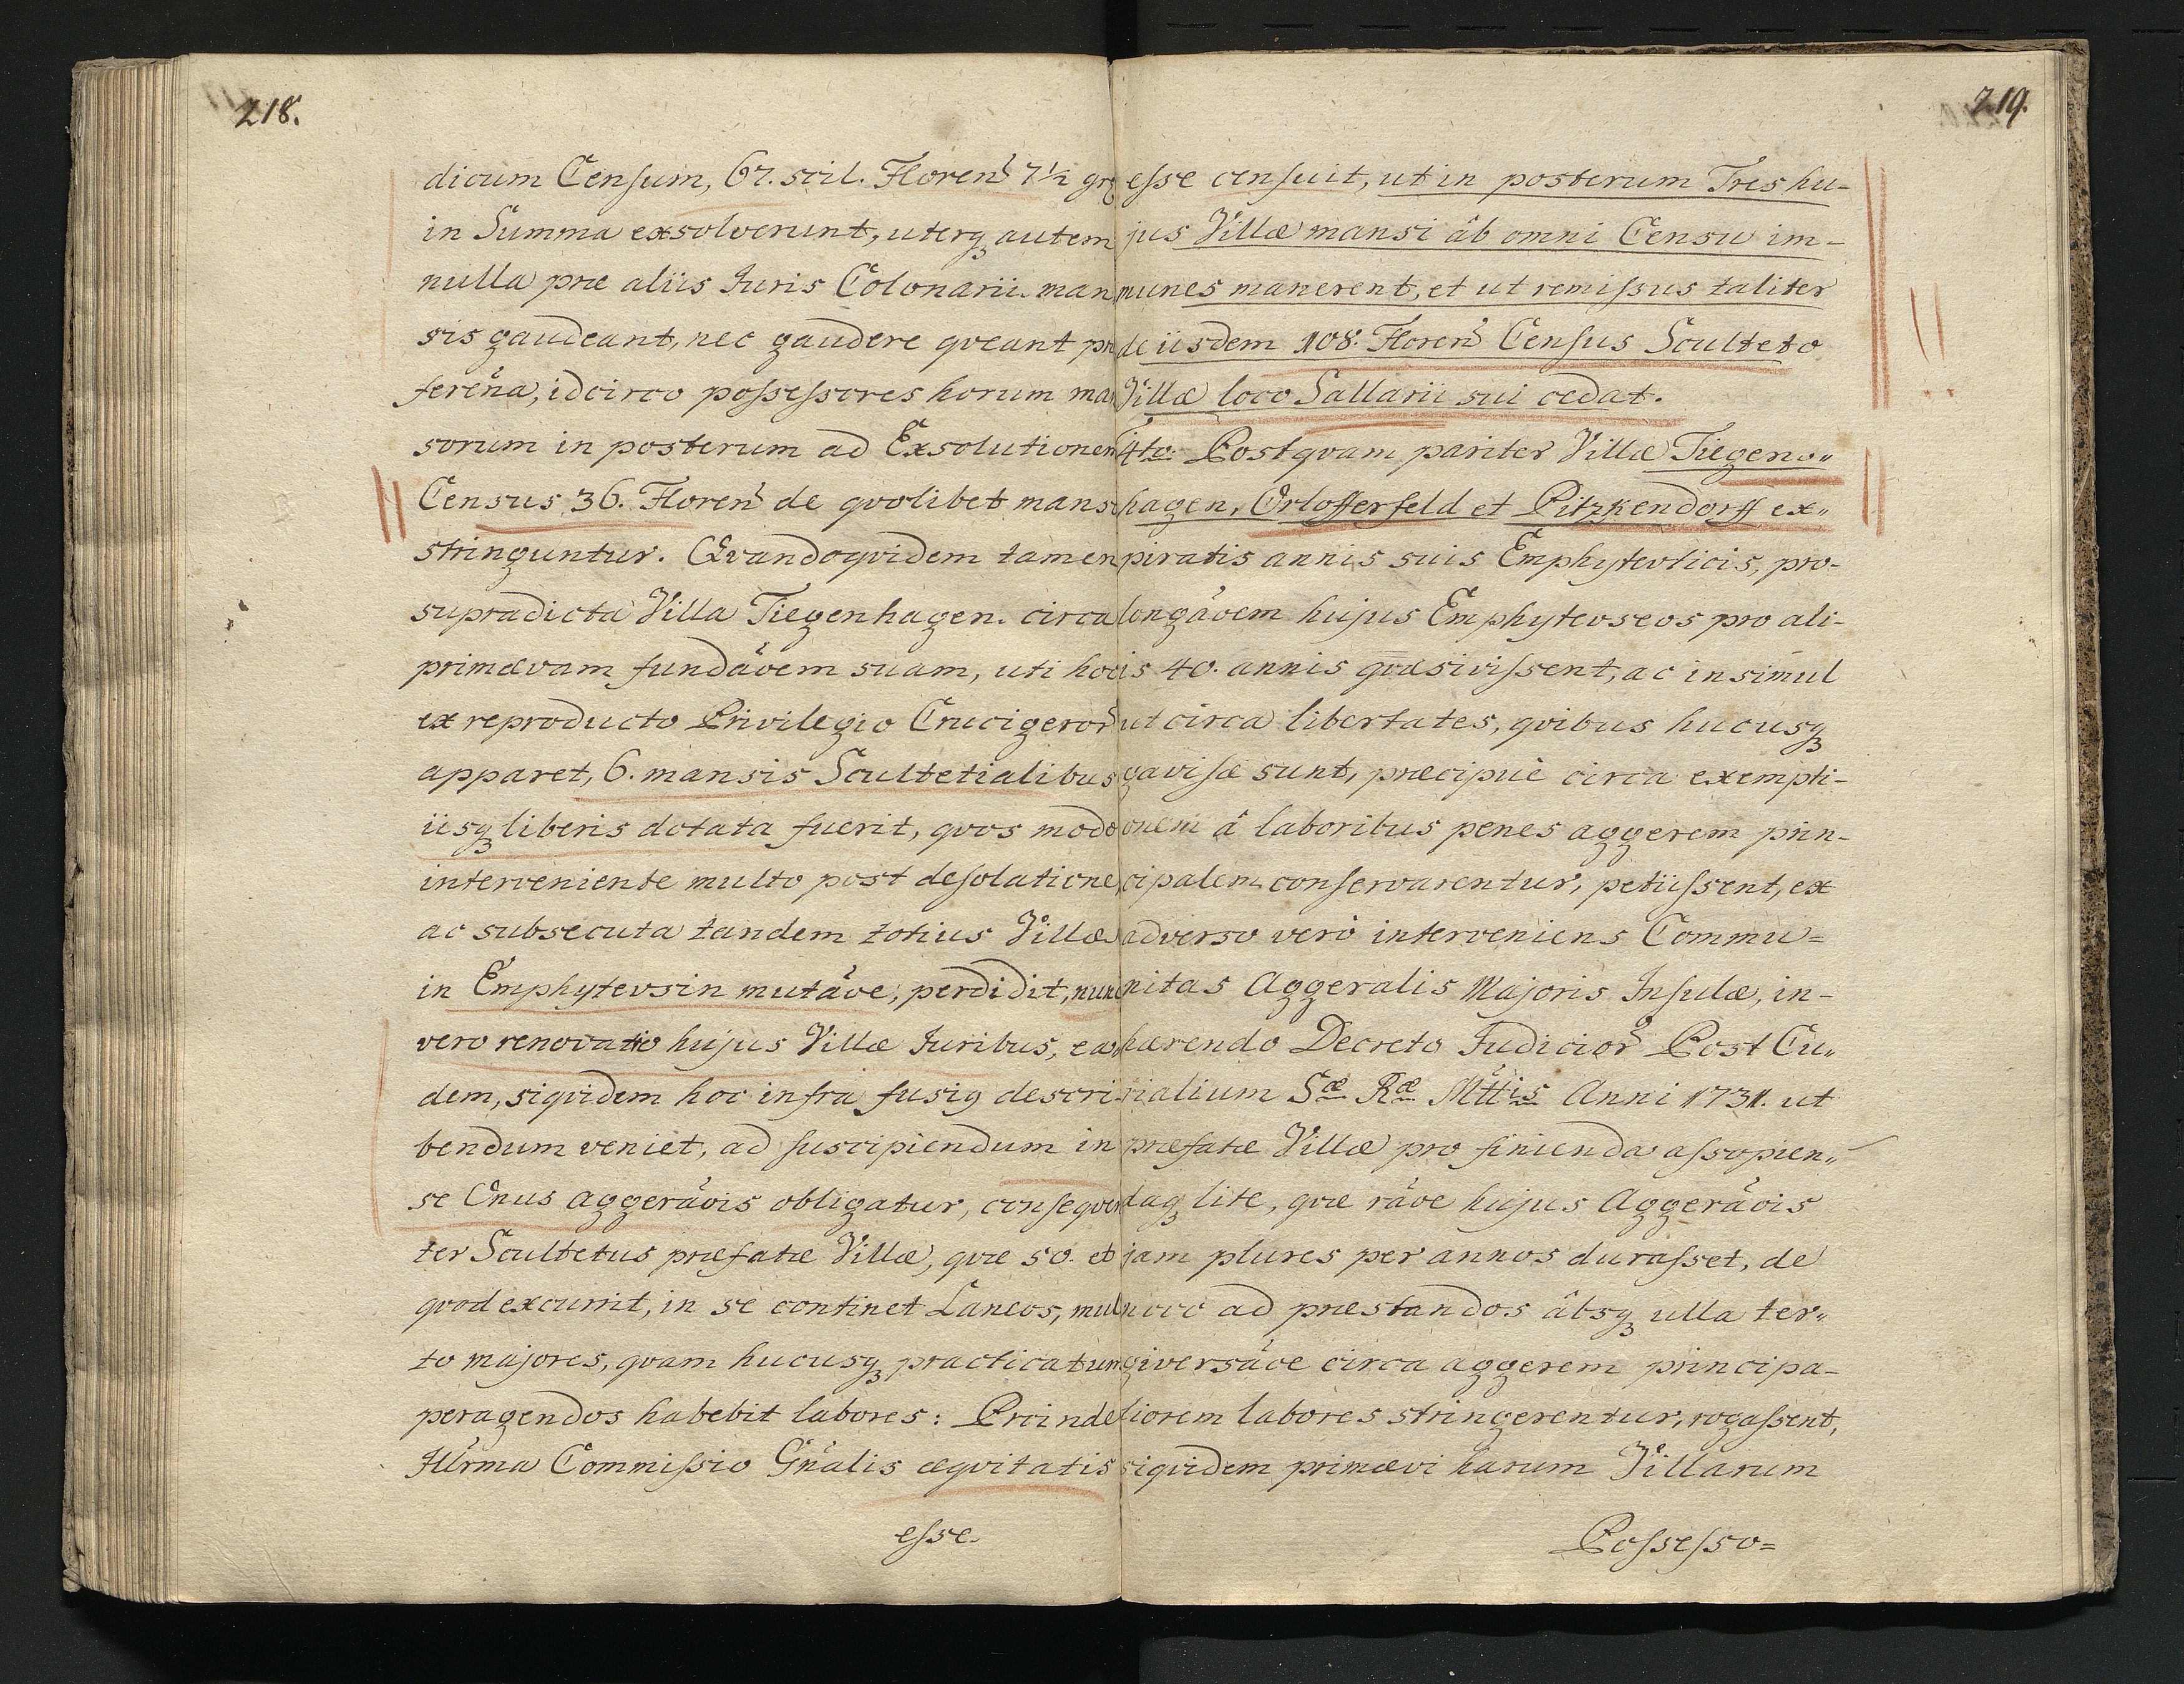 218.
dicum Censum, 67. scil. Floren̄ 7½ gr̄
in Summa exsolverunt, uterq; autem
nulla præ aliis Juris Colonarii man
sis gaudeant, nec gaudere qveant præ
ferên̄a, idcirco possessores horum man
sorum in posterum ad Exsolutionem
Census 36. Floren̄ de qvolibet manso
stringuntur. Qvandoqvidem tamen
supradicta Villa Tiegenhagen. circa
primævam fundāoem suam, uti hoc
ex reproducto Privilegio Crucigeror̄
apparet, 6. mansis Scultetialibus
iisq; liberis dotata fuerit, qvos modo
interveniente multo post desolatione,
ac subsecuta tandem totius Villæ
in Emphytevsin mutāoe, perdidit, nunc
vero renovatio hujus Villæ Juribus, ea
dem, siqvidem hoc infra fusiq descri-
bendum veniet, ad suscipiendum in
se Onus aggerāois obligatur, conseqven
ter Scultetus præfatæ Villæ, qvæ 50. et
qvod excurrit, in se continet Laneos, mul
to majores, qvam hucusq; practicatum
peragendos habebit labores: Proinde
Illr̄ma Commissio Gn̄alis æqvitatis
esse
219.
esse censuit, ut in posterum Tres hu-
jus Villæ mansi âb omni Censu im-
munes manerent, et ut remissus taliter
de iisdem 108. Floren̄ Census Sculteto
Villæ loco Sallarii sui cedat.
4to. Postqvam pariter Villæ Tiegen„
hagen, Orlofferfeld et Pitzkendorff ex„
piratis annis suis Emphytevticis, pro-
longāoem hujus Emphytevseos pro ali-
is 40. annis qvæsivissent, ac insimul
ut circa libertates, qvibus hucusq;
gavisæ sunt, præcipuè circa exempti-
onem â laboribus penes aggerem prin-
cipalem conservarentur, petiissent, ex
adverso verò interveniens Commu=
nitas Aggeralis Majoris Insulæ, in-
hærendo Decreto Judicior̄ Post Cu„
rialium Sæ Ræ Mttis Anni 1731. ut
præfatæ Villæ pro finienda assopien„
daq; lite, qvæ rāoe hujus Aggerāois
jam plures per annos durasset, de
novo ad præstandos âbsq; ulla ter„
giversāoe circa aggerem principa-
liorem labores stringerentur, rogassent,
siqvidem primævi harum Villarum
Possesso=